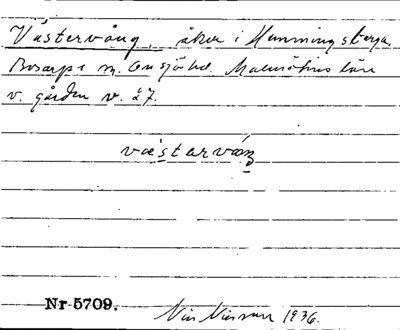 Västervång, åker i Hemmingsberga
Bosarps sn. Onsjö hd. Malmöhus län
v. gården v. 27.
västerváŋ
Nr 5709.
Nils Nilsson 1936.